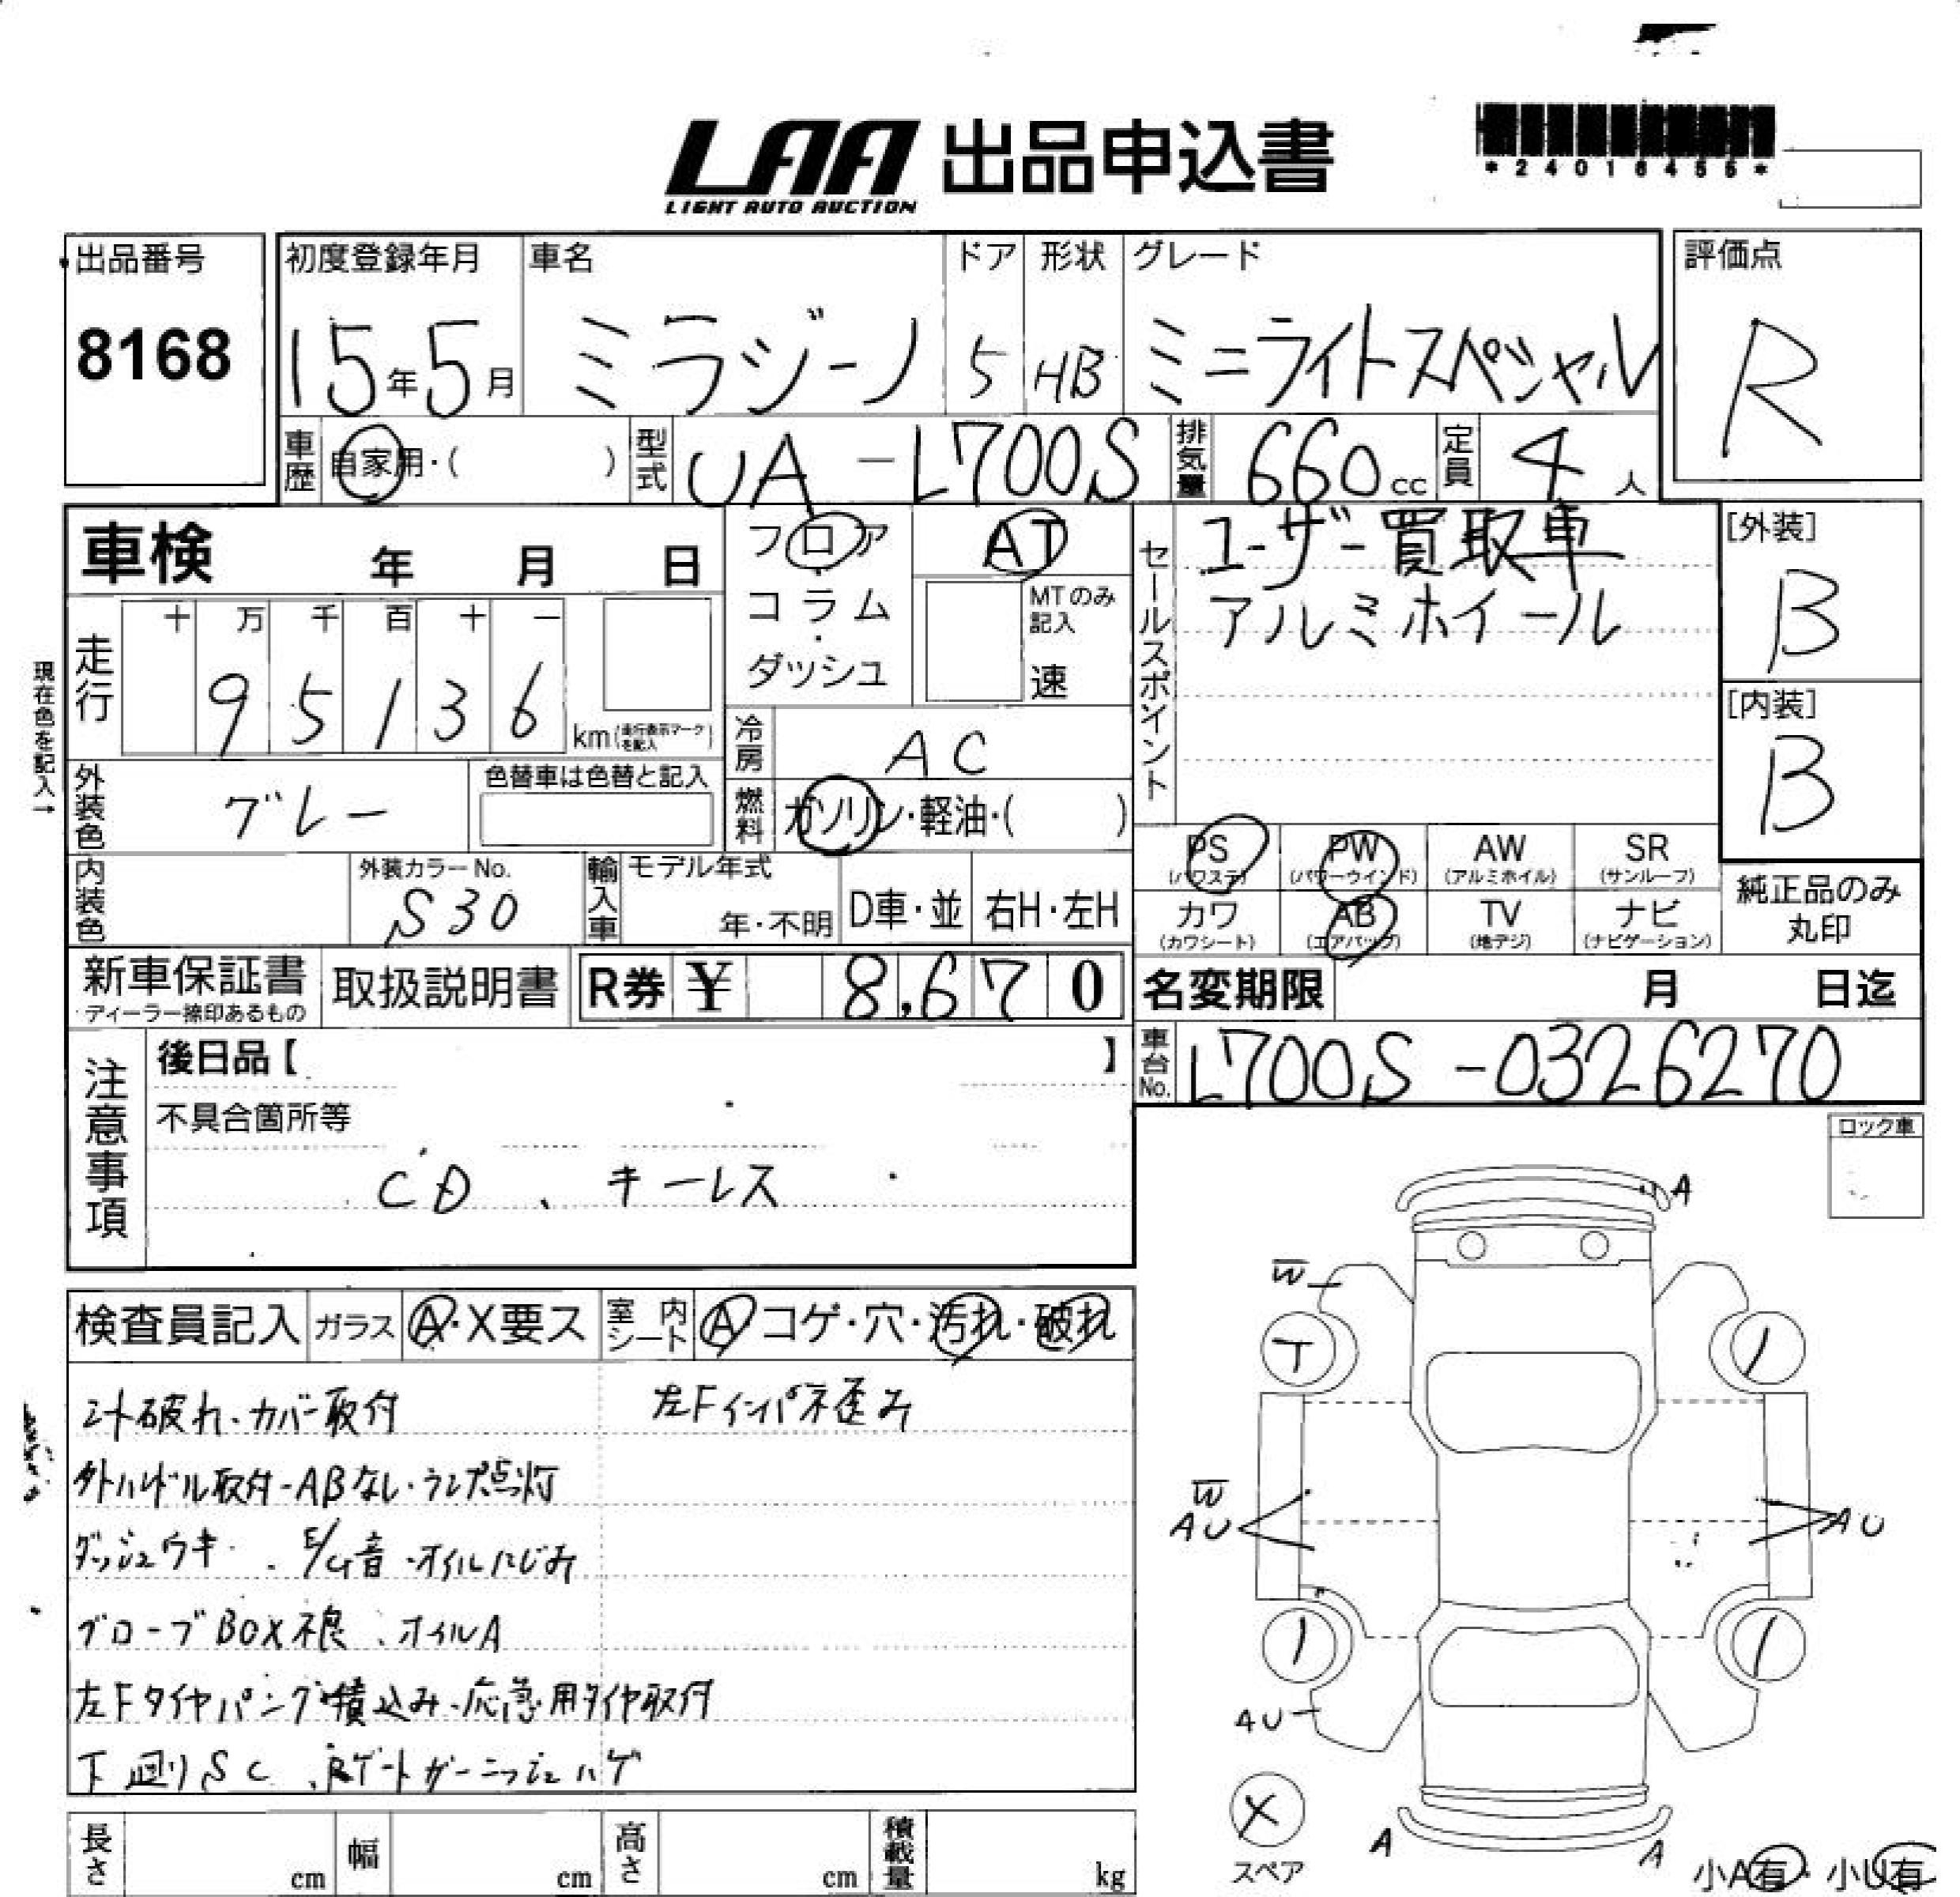 LAA 出品申込書
LIGHT AUTO AUCTION
*24016455*
出品番号
8168
初度登録年月
15年5月
車名
ミラジーノ
ドア
5
形状
HB
グレード
ミニライトスペシャル
評価点
R
車歴
自家用・( )
型式
UA-L700S
排気量
660cc
定員
4人
車検 年 月 日
フロア
・
コラム
・
ダッシュ
AT
MTのみ
記入
速
セールスポイント
ユーザー買取車
アルミホイール
[外装]
B
[内装]
B
現在色を記入→
走行
十 万 千 百 十 一
9 5 1 3 6
km(走行表示マークを記入)
冷房
AC
燃料
ガソリン・軽油・( )
外装色
グレー
色替車は色替と記入
内装色
外装カラーNo.
S30
輸入車
モデル年式
年・不明
D車・並
右H・左H
PS
(パワステ)
PW
(パワーウインド)
AW
(アルミホイル)
SR
(サンルーフ)
カワ
(カワシート)
AB
(エアバッグ)
TV
(地デジ)
ナビ
(ナビゲーション)
純正品のみ
丸印
新車保証書
ディーラー捺印あるもの
取扱説明書
R券 ¥ 8,670
名変期限 月 日迄
車台No.
L700S-0326270
注意事項
後日品【 】
不具合箇所等
CD、キーレス
ロック車
検査員記入
ガラス
A・X要ス
室内
シート
A コゲ・穴・汚れ・破れ
シート破れ、カバー取付
左Fインパネ歪み
外ハンドル取付-ABなし・ランプ点灯
ダッシュウキ、E/G音・オイルにじみ
グローブBOX不良、オイルA
左Fタイヤパンク積込み、応急用タイヤ取付
下廻りSC、Rゲートガーニッシュハゲ
A
W
T
W
AU
AU
AU
X
スペア
A
A
小A有・小U有
長さ cm
幅 cm
高さ cm
積載量 kg